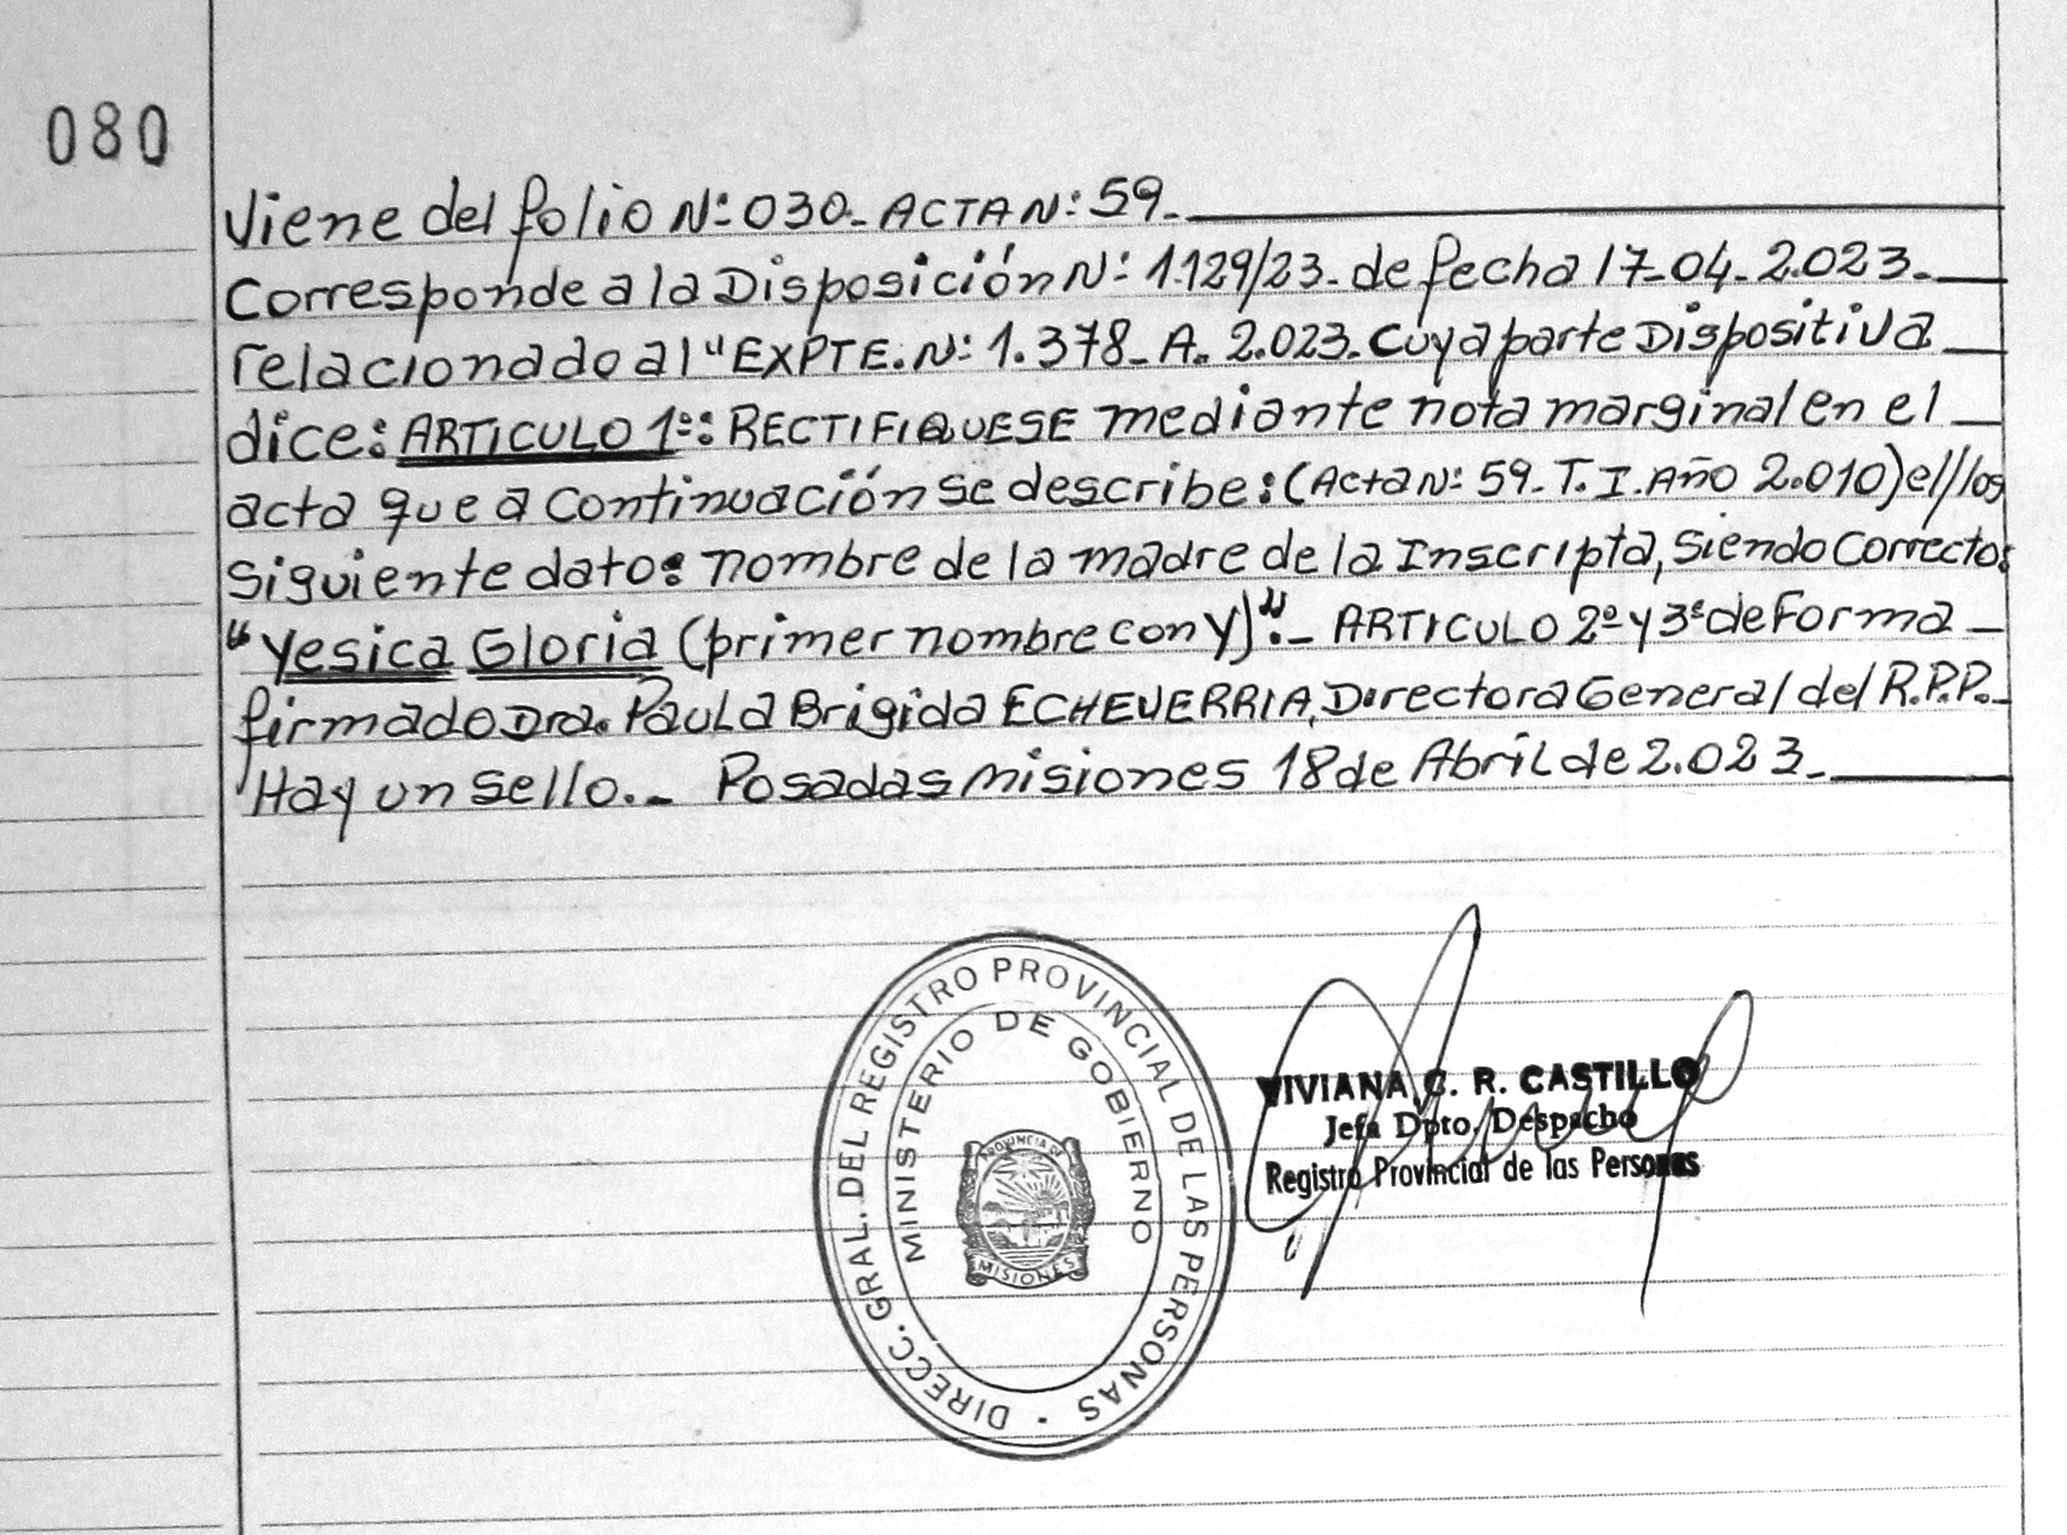 080
Viene del folio N: 030_ ACTA N: 59._
Corresponde a la Disposición N: 1.129/23_ de fecha 17_04_2.023._
relacionado al "EXPTE. N: 1.378_ A. 2.023. Cuya parte Dispositiva_
dice: ARTICULO 1º: RECTIFIQUESE mediante nota marginal en el_
acta que a continuación se describe: (Acta N: 59_ T. I. Año 2.010) el//los
Siguiente dato: nombre de la madre de la Inscripta, siendo Correcto:
"Yesica Gloria (primer nombre con Y)"._ ARTICULO 2º y 3º de Forma_
firmado Dra. Paula Brigida ECHEVERRIA, Directora General del R.P.P._
Hay un sello._ Posadas misiones 18 de Abril de 2.023._
DIRECC. GRAL. DEL REGISTRO PROVINCIAL DE LAS PERSONAS
MINISTERIO DE GOBIERNO
PROVINCIA DE
MISIONES
VIVIANA C. R. CASTILLO
Jefa Dpto. Despacho
Registro Provincial de las Personas